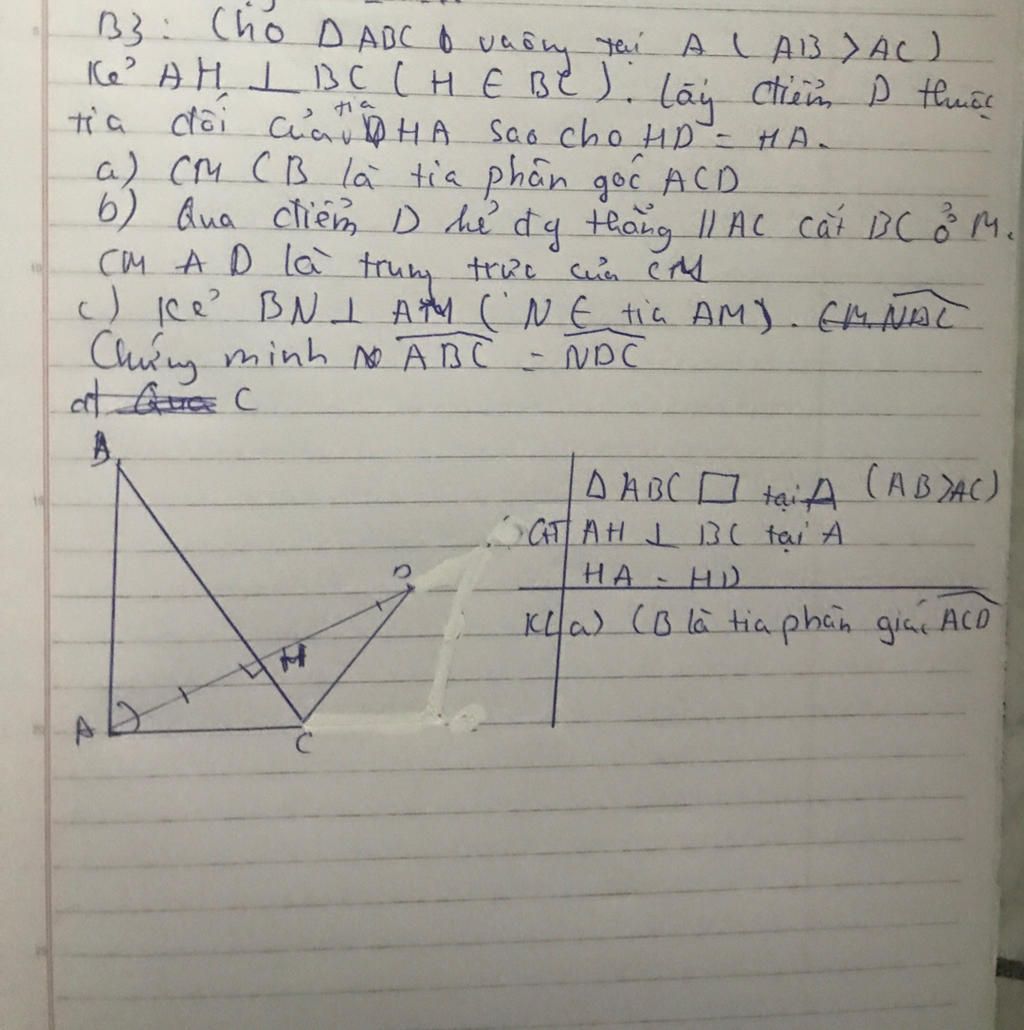 B3: Cho Δ ABC vuông tại A (AB > AC)
Kẻ AH ⊥ BC (H ∈ BC). Lấy điểm D thuộc
tia đối của tia HA sao cho HD = HA.
a) CM CB là tia phân góc ACD
b) Qua điểm D kẻ đg thẳng // AC cắt BC ở M.
CM AD là trung trực của CM
c) Kẻ BN ⊥ AM (N ∈ tia AM). CM NDC
Chứng minh ABC = NDC
d) Qua C
B
Δ ABC □ tại A (AB > AC)
GT AH ⊥ BC tại A
D
HA = HD
KL a) CB là tia phân giác ACD
H
A
C